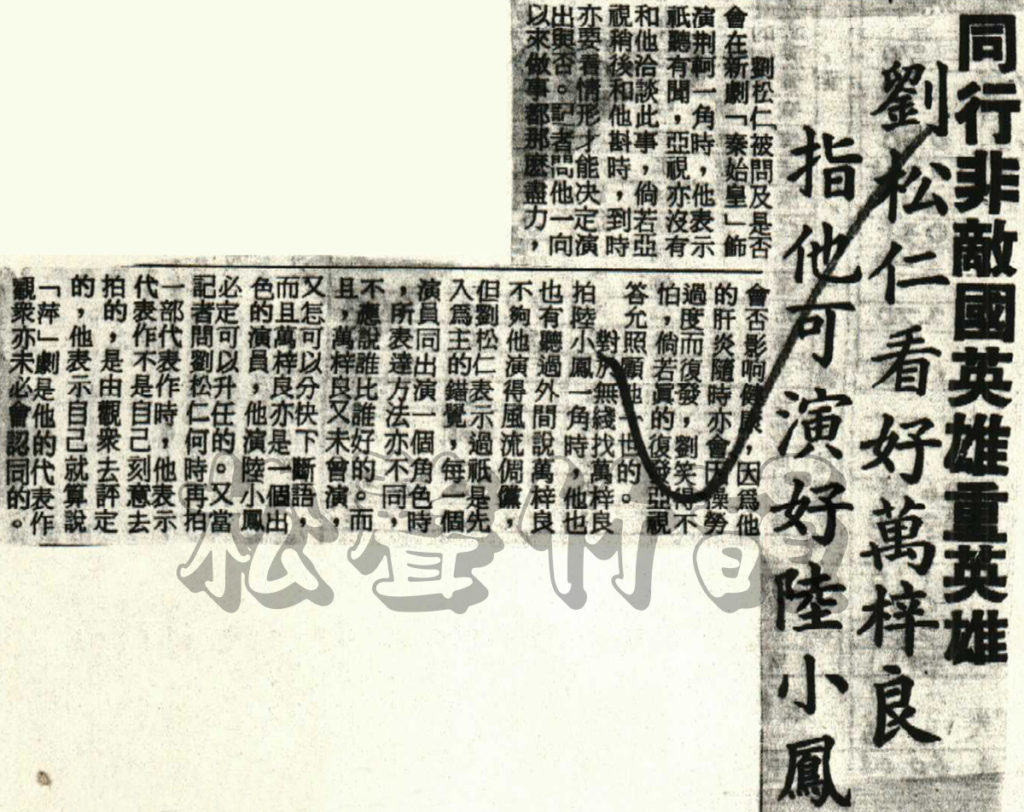 同行非敵國英雄重英雄
劉松仁看好萬梓良
指他可演好陸小鳳
劉松仁被問及是否
會在新劇「秦始皇」飾
演荆軻一角時，他表示
祇聽有聞，亞視亦沒有
和他洽談此事，倘若亞
視稍後和他斟時，到時
亦要看情形才能决定演
出與否。記者問他一向
以來做事都那麽盡力，
會否影响健康，因爲他
的肝炎隨時亦會因操勞
過度而復發，劉笑得不
怕，倘若眞的復發亞視
答允照顧他一世的。
對於無綫找萬梓良
拍陸小鳳一角時，他也
也有聽過外間說萬梓良
不夠他演得風流倜儻，
但劉松仁表示過祇是先
入爲主的錯覺，每一個
演員同出演一個角色時
，所表達方法亦不同，
不應說誰比誰好的。而
且，萬梓良又未曾演，
又怎可以分快下斷語，
而且萬梓良亦是一個出
色的演員，他演陸小鳳
必定可以升任的。又當
記者問劉松仁何時再拍
一部代表作時，他表示
代表作不是自己刻意去
拍的，是由觀衆去評定
的，他表示自己就算說
「萍」劇是他的代表作
觀衆亦未必會認同的。